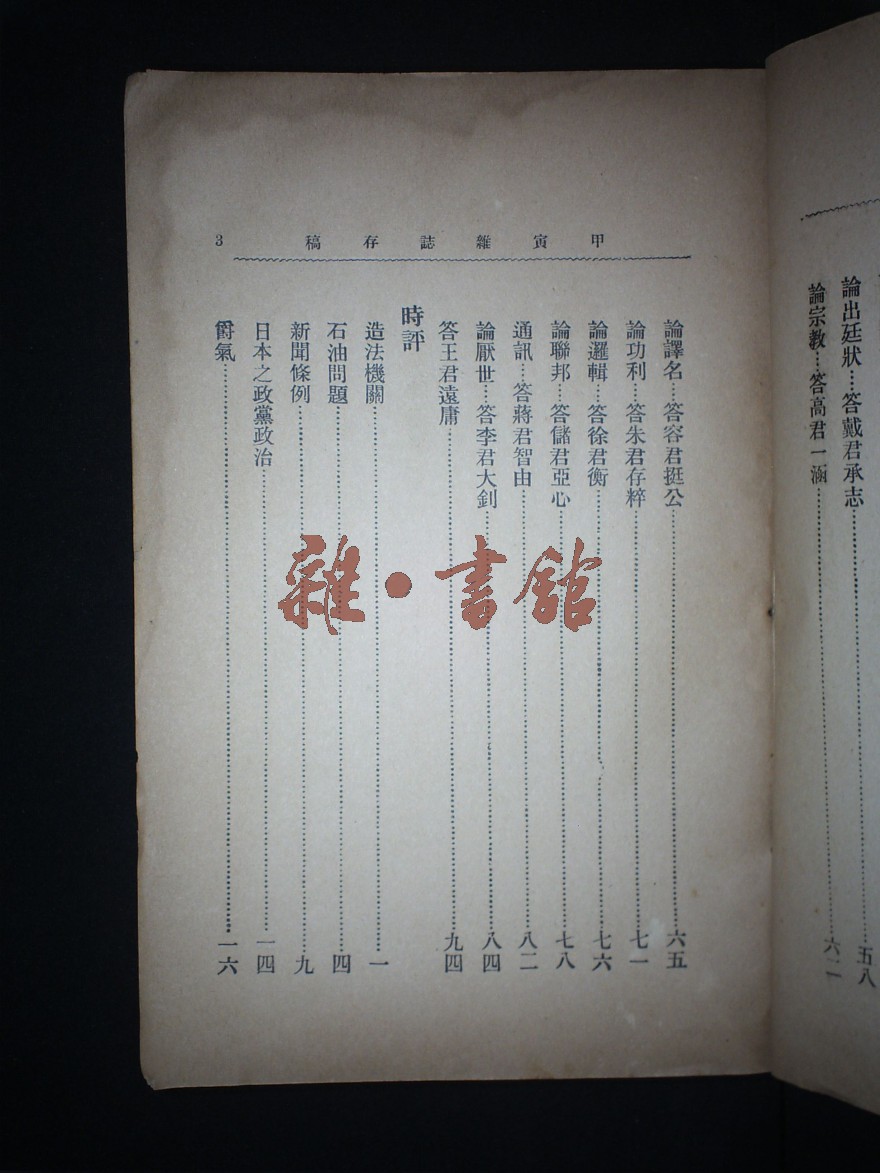 論出廷狀…答戴君承志……五八
論宗教…答高君一涵……六二
甲寅雜誌存稿 3
論譯名…答容君挺公……六五
論功利…答朱君存粹……七一
論邏輯…答徐君衡……七六
論聯邦…答儲君亞心……七八
通訊…答蔣君智由……八二
論厭世…答李君大釗……八四
答王君遠庸……九四
時評
造法機關……一
石油問題……四
新聞條例……九
日本之政黨政治……一四
爵氣……一六
雜·書館